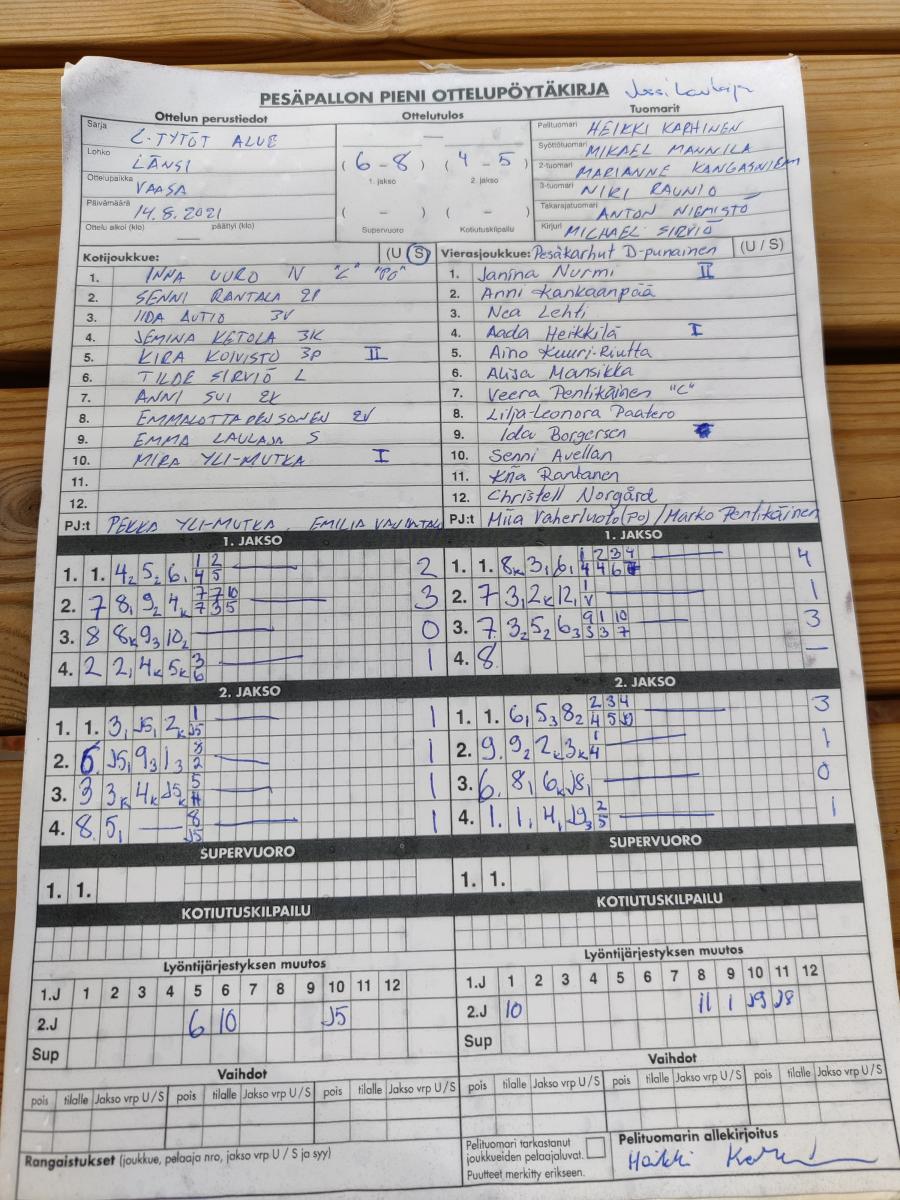 PESÄPALLON PIENI OTTELUPÖYTÄKIRJA
Ottelun perustiedot Ottelutulos Tuomarit
Sarja C-TYTÖT ALUE
Lohko LÄNSI
Ottelupaikka VAASA
Päivämäärä 14.8.2021
Ottelu alkoi (klo) — päättyi (klo)
(6 - 8) (4 - 5)
1. jakso 2. jakso
( - ) ( - )
Supervuoro Kotiutuskilpailu
Pelituomari HEIKKI KARHINEN
Syöttötuomari MIKAEL MANNILA
2-tuomari MARIANNE KANGASNIEMI
3-tuomari NIKI RAUNIO
Takarajatuomari ANTON NIEMISTÖ
Kirjuri MICHAEL SIRVIÖ
Kotijoukkue: (U S)
1. INNA UURO IV "C" "PO"
2. SENNI RANTALA 2P
3. IIDA AUTIO 3V
4. JEMINA KETOLA 3K
5. KIRA KOIVISTO 3P II
6. TILDE SIRVIÖ L
7. ANNI SUI 2K
8. EMMALOTTA 2V
9. EMMA LAULAJA S
10. MIRA YLI-MUTKA I
11.
12.
PJ:t PEKKA YLI-MUTKA, EMILIA
Vierasjoukkue: Pesäkarhut D-punainen (U / S)
1. Janina Nurmi II
2. Anni Kankaanpää
3. Nea Lehti
4. Aada Heikkilä I
5. Aino Kuuri-Riutta
6. Alisa Mansikka
7. Veera Pentikäinen "C"
8. Lilja-Leonora Paatero
9. Ida Borgersen
10. Senni Avellan
11. Kiia Rantanen
12. Christell Norgård
PJ:t Miia Vaherluoto (PO) / Marko Pentikäinen
1. JAKSO
1. 1. 4₂ 5₂ 6, 1 2 4 5 2
2. 7 8, 9₂ 4ₖ 7 7 10 7 3 5 3
3. 8 8ₖ 9₃ 10₂ 0
4. 2 2, 4ₖ 5ₖ 3 6 1
1. JAKSO
1. 1. 8ₖ 3, 6, 1 2 3 4 4 4 6 4
2. 7 3, 2ₖ 12, 1 V 1
3. 7 3₂ 5₂ 6₃ 9 1 10 3 3 7 3
4. 8. —
2. JAKSO
1. 1. 3, J5, 2ₖ 1 J5 1
2. 6 J5, 9₃ 1₃ 8 2 1
3. 3 3ₖ 4ₖ J5ₖ 5 1
4. 8 5, — 8 J5 1
2. JAKSO
1. 1. 6, 5₃ 8₂ 2 3 4 4 5 10 3
2. 9. 9₂ 2ₖ 3ₖ 1 4 1
3. 6. 8, 6ₖ J8, 0
4. 1. 1, 4, J9₃ 2 5 1
SUPERVUORO
1. 1.
SUPERVUORO
1. 1.
KOTIUTUSKILPAILU
KOTIUTUSKILPAILU
Lyöntijärjestyksen muutos
1.J 1 2 3 4 5 6 7 8 9 10 11 12
2.J 6 10 J5
Sup
Lyöntijärjestyksen muutos
1.J 1 2 3 4 5 6 7 8 9 10 11 12
2.J 10 11 1 J9 J8
Sup
Vaihdot
pois tilalle Jakso vrp U / S pois tilalle Jakso vrp U / S pois tilalle Jakso vrp U / S
Vaihdot
pois tilalle Jakso vrp U / S pois tilalle Jakso vrp U / S pois tilalle Jakso vrp U / S
Rangaistukset (joukkue, pelaaja nro, jakso vrp U / S ja syy)
Pelituomari tarkastanut
joukkueiden pelaajaluvat.
Puutteet merkitty erikseen.
Pelituomarin allekirjoitus